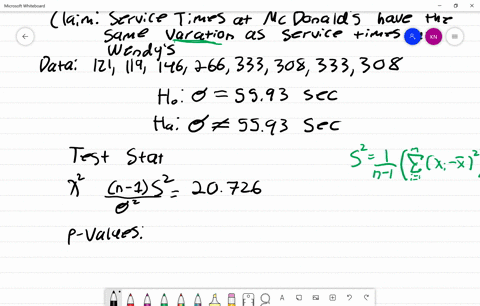 Microsoft Whiteboard
KN
Claim: Service Times at McDonald's have the
same Varation as service times
Wendy's
Data: 121, 119, 146, 266, 333, 308, 333, 308
H₀: σ = 55.93 sec
Ha: σ ≠ 55.93 sec
Test Stat
S² = 1/(n-1) (∑ᵢ₌₁ⁿ (xᵢ - x̄)²
χ² (n-1)S²/σ² = 20.726
P-Values: